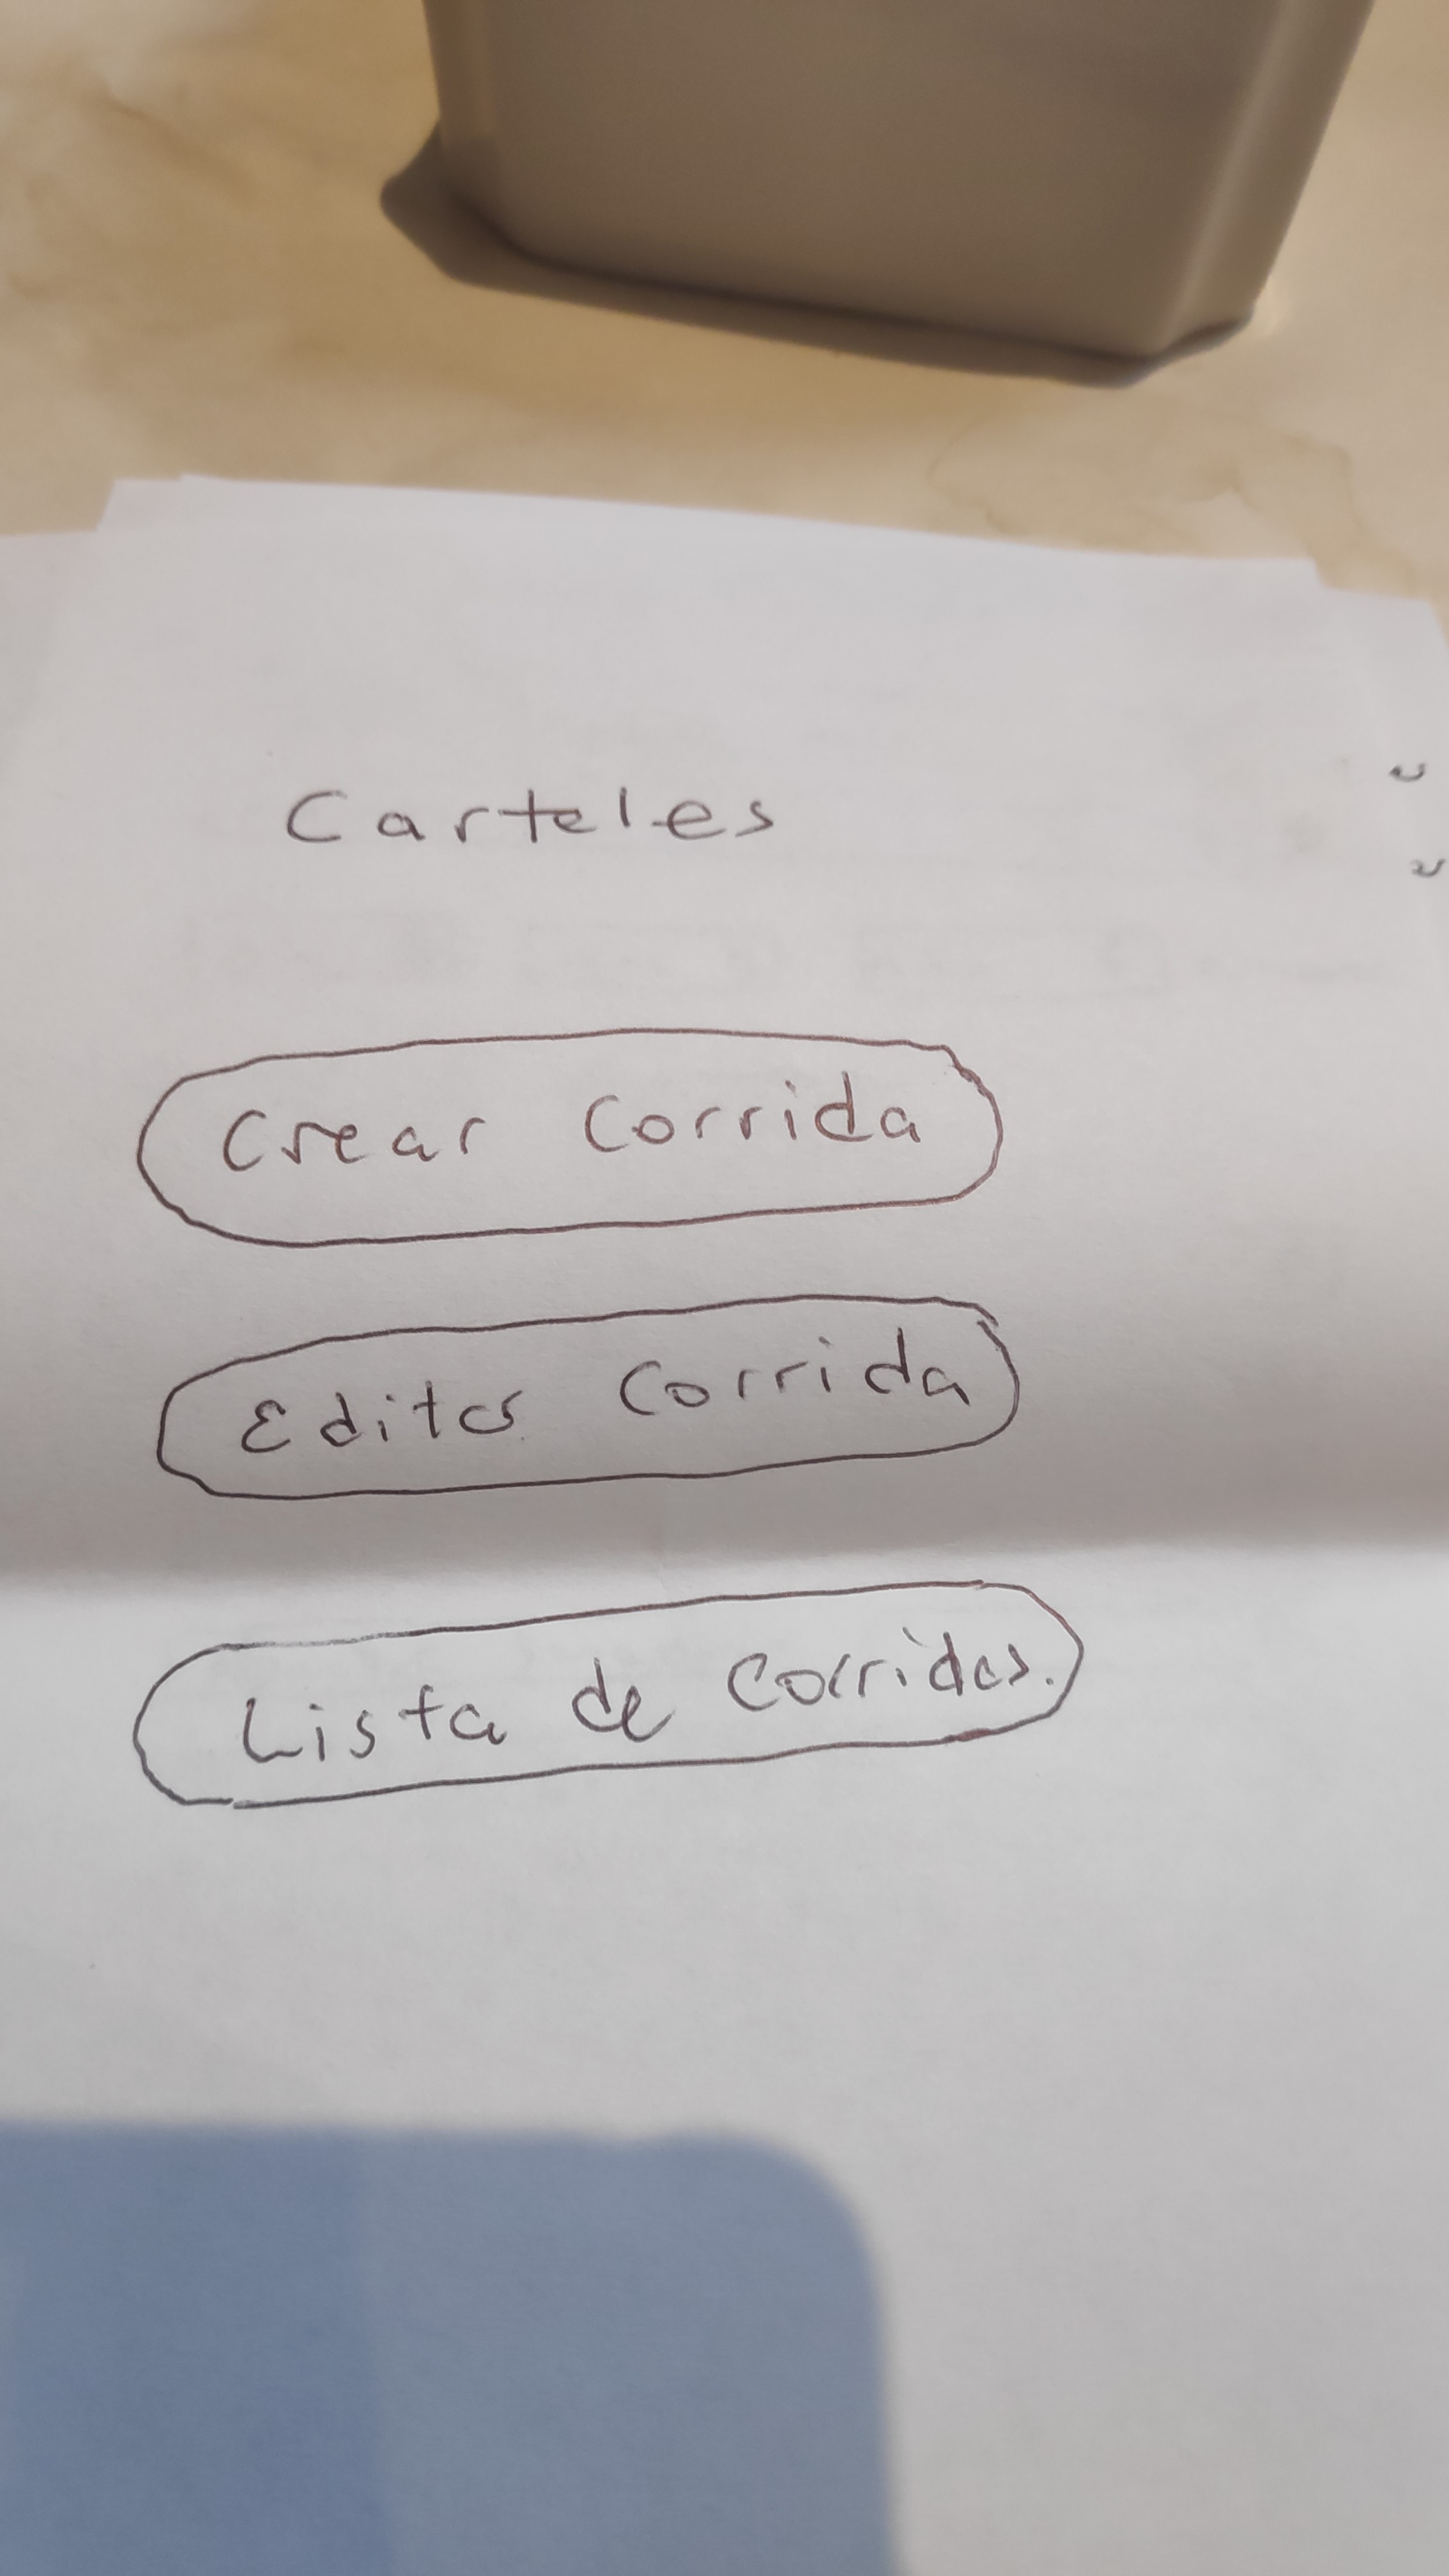 Carteles
Crear Corrida
Editar Corrida
Lista de Corridas.